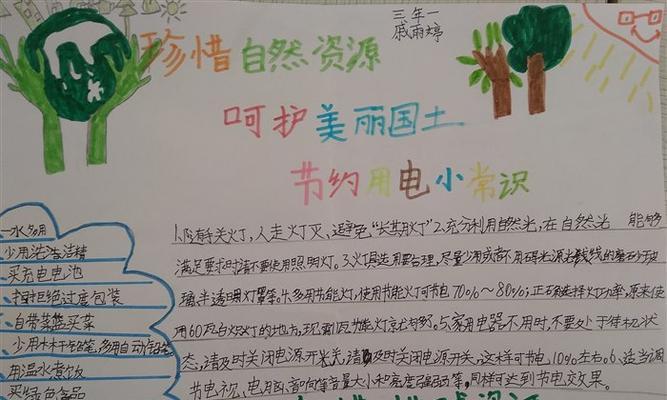 三年一
戚雨婷
珍惜自然资源
呵护美丽国土
节约用电小常识
一水多用
少用洗洁精
买充电电池
拒绝过度包装
自带菜篮买菜
少用木杆铅笔,多用自动铅笔
用温水煮饭
买绿色食品
1.随手关灯,人走灯灭,避免“长明灯”2.充分利用自然光,在自然光能够
满足要求时请不要使用照明灯。3.灯具选用要合理,尽量少用或不用
璃半透明灯罩等。4.多用节能灯,使用节能灯可节电70%~80%;正确选择灯功率,原来使
用60瓦白炽灯的地方,现 瓦节能灯就够了。5.家用电器不用时,不要处于待机状
态,请及时关闭电源开关,请及时关闭电源开关,这样可节电10%左右。6.适当调
节电视、电脑、音响等音量大小和亮度强弱等,同样可达到节电效果。